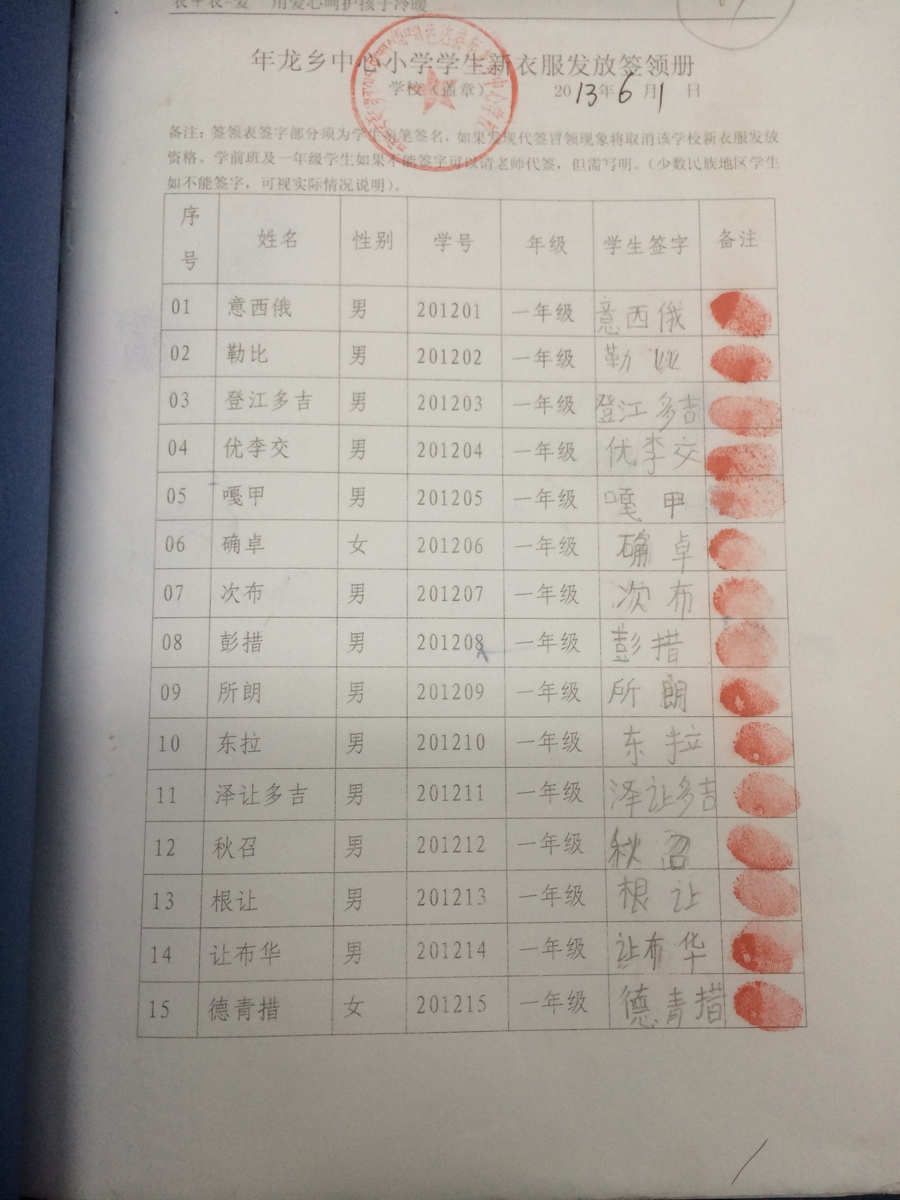 衣+衣=爱 用爱心呵护孩子冷暖
年龙乡中心小学学生新衣服发放签领册
学校（盖章） 2013年6月1日
备注：签领表签字部分须为学生亲笔签名，如果发现代签冒领现象将取消该学校新衣服发放
资格。学前班及一年级学生如果不能签字可以请老师代签，但需写明。（少数民族地区学生
如不能签字，可视实际情况说明）。
序号 姓名 性别 学号 年级 学生签字 备注
01 意西俄 男 201201 一年级 意西俄
02 勒比 男 201202 一年级 勒比
03 登江多吉 男 201203 一年级 登江多吉
04 优李交 男 201204 一年级 优李交
05 嘎甲 男 201205 一年级 嘎甲
06 确卓 女 201206 一年级 确卓
07 次布 男 201207 一年级 次布
08 彭措 男 201208 一年级 彭措
09 所朗 男 201209 一年级 所朗
10 东拉 男 201210 一年级 东拉
11 泽让多吉 男 201211 一年级 泽让多吉
12 秋召 男 201212 一年级 秋召
13 根让 男 201213 一年级 根让
14 让布华 男 201214 一年级 让布华
15 德青措 女 201215 一年级 德青措